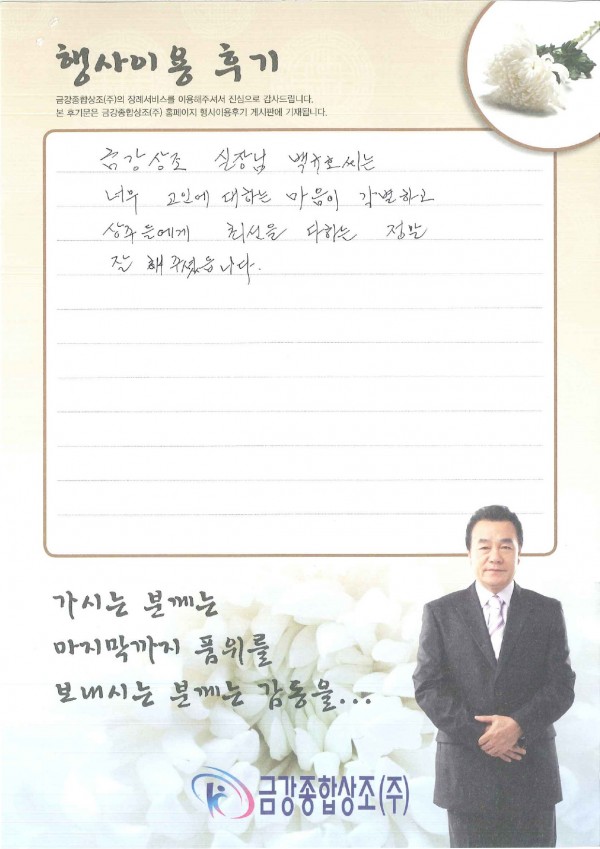 행사이용 후기
금강종합상조(주)의 장례서비스를 이용해주셔서 진심으로 감사드립니다.
본 후기문은 금강종합상조(주) 홈페이지 행사이용후기 게시판에 기재됩니다.
금강상조 실장님 백규호씨는
너무 고인에 대하는 마음이 각별하고
상주들에게 최선을 다하는 정말
잘 해주셨습니다.
가시는 분께는
마지막까지 품위를
보내시는 분께는 감동을...
금강종합상조(주)